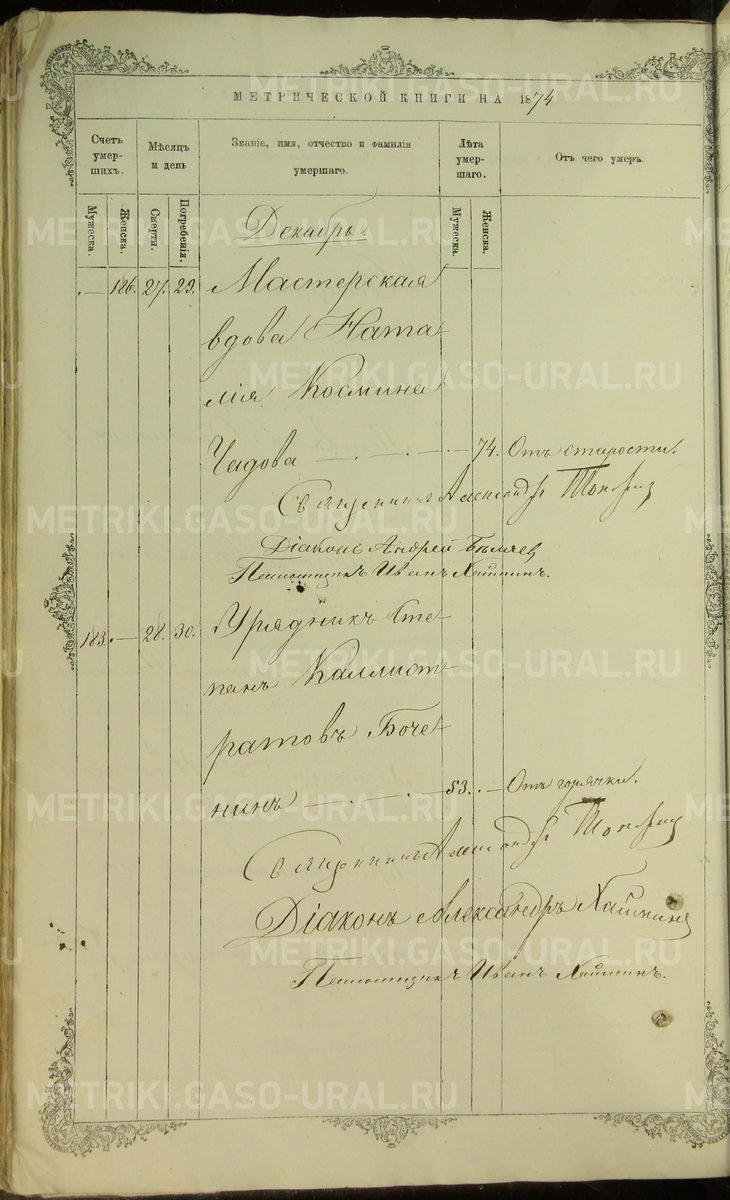 МЕТРИЧЕСКОЙ КНИГИ НА 1874
Счетъ умерших.
Мѣсяцъ и день
Званіе, имя, отчество и фамилія умершаго.
Лѣта умершаго.
Отъ чего умеръ.
Мужеска.
Женска.
Смерти.
Погребенія.
Мужеска.
Женска.
Декабрь.
— 186. 27. 29. Мастерская
вдова Ната
лія Космина
Чадова — 74. Отъ старости.
Священникъ Александръ
Діаконъ Андрей
Псаломщикъ Иванъ Хайминъ.
183. — 28. 30. Урядникъ Сте
панъ Каллист
ратовъ Боче
нинъ — 53. — Отъ горячки.
Священникъ Александръ
Діаконъ Александръ
Псаломщикъ Иванъ Хайминъ.
METRIKI.GASO-URAL.RU